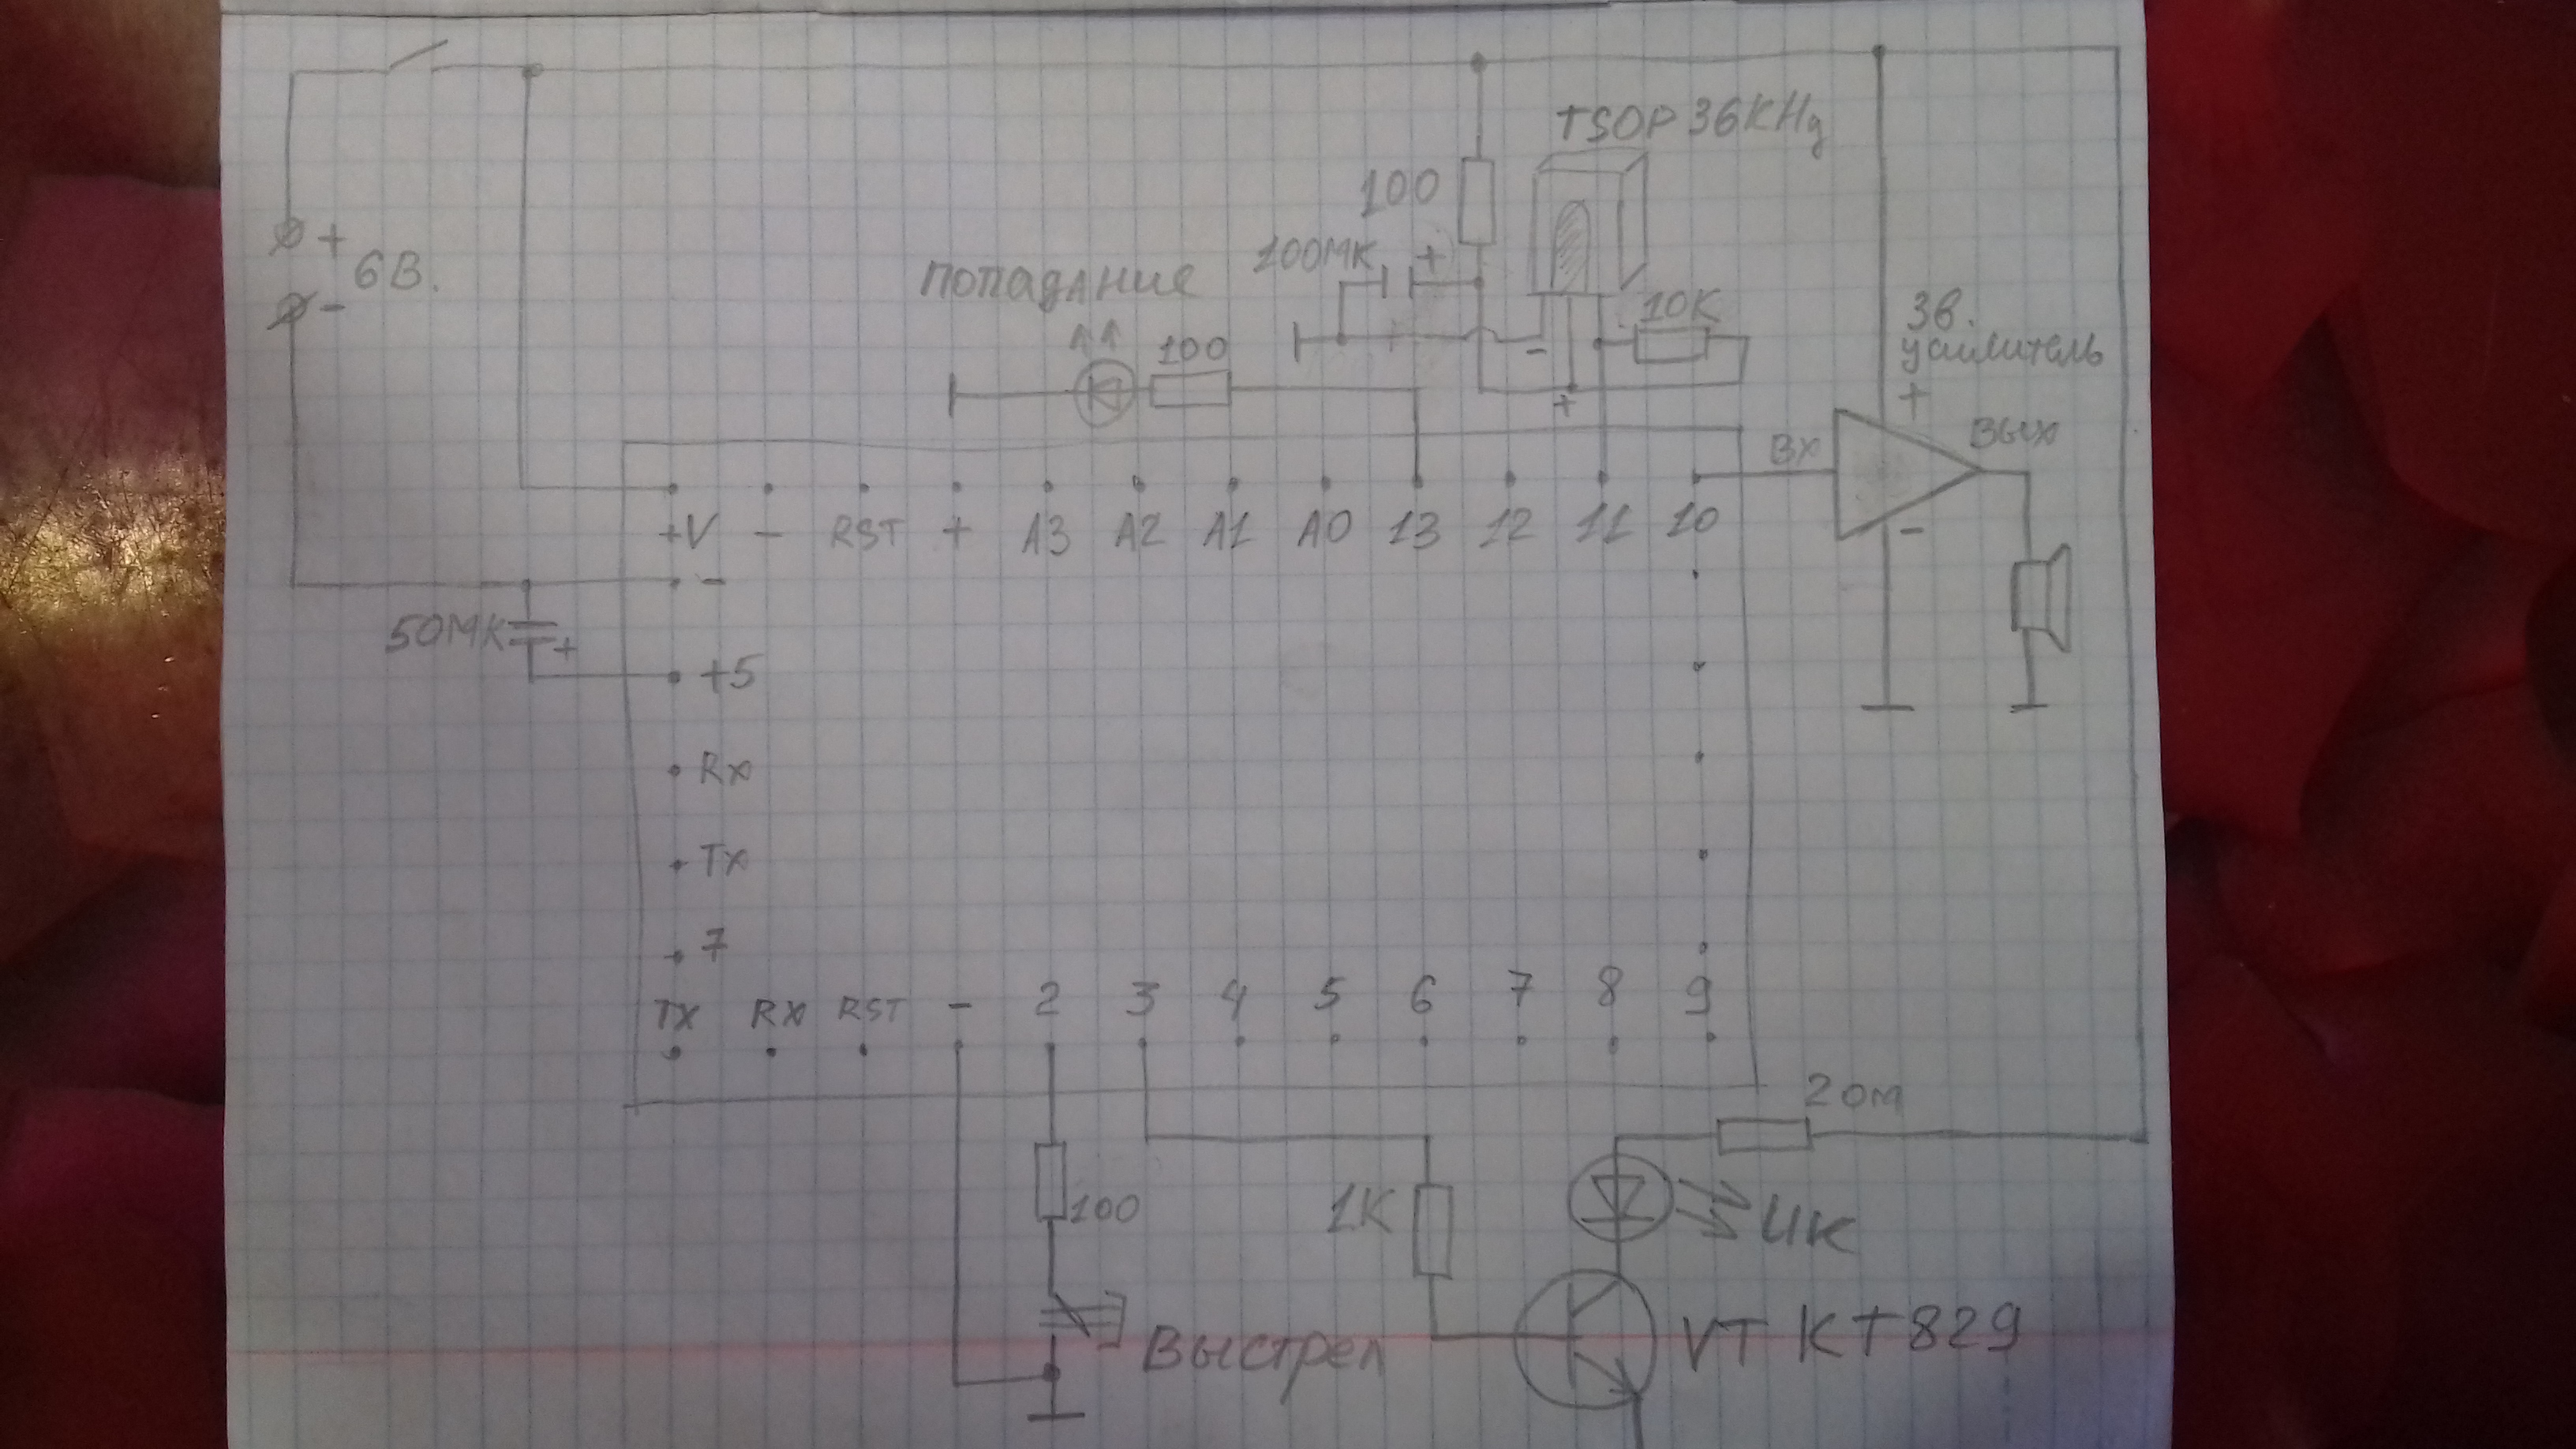 TSOP 36KHg
100
100МК +
+
6В.
-
попадание
10К
100
-
+
Зв.
усилитель
+
Вх
Вых
-
+V - RST + A3 A2 A1 A0 13 12 11 10
-
50МК
+
+5
Rx
Tx
7
TX RX RST - 2 3 4 5 6 7 8 9
2 ом
100
1К
ИК
Выстрел
VT КТ829